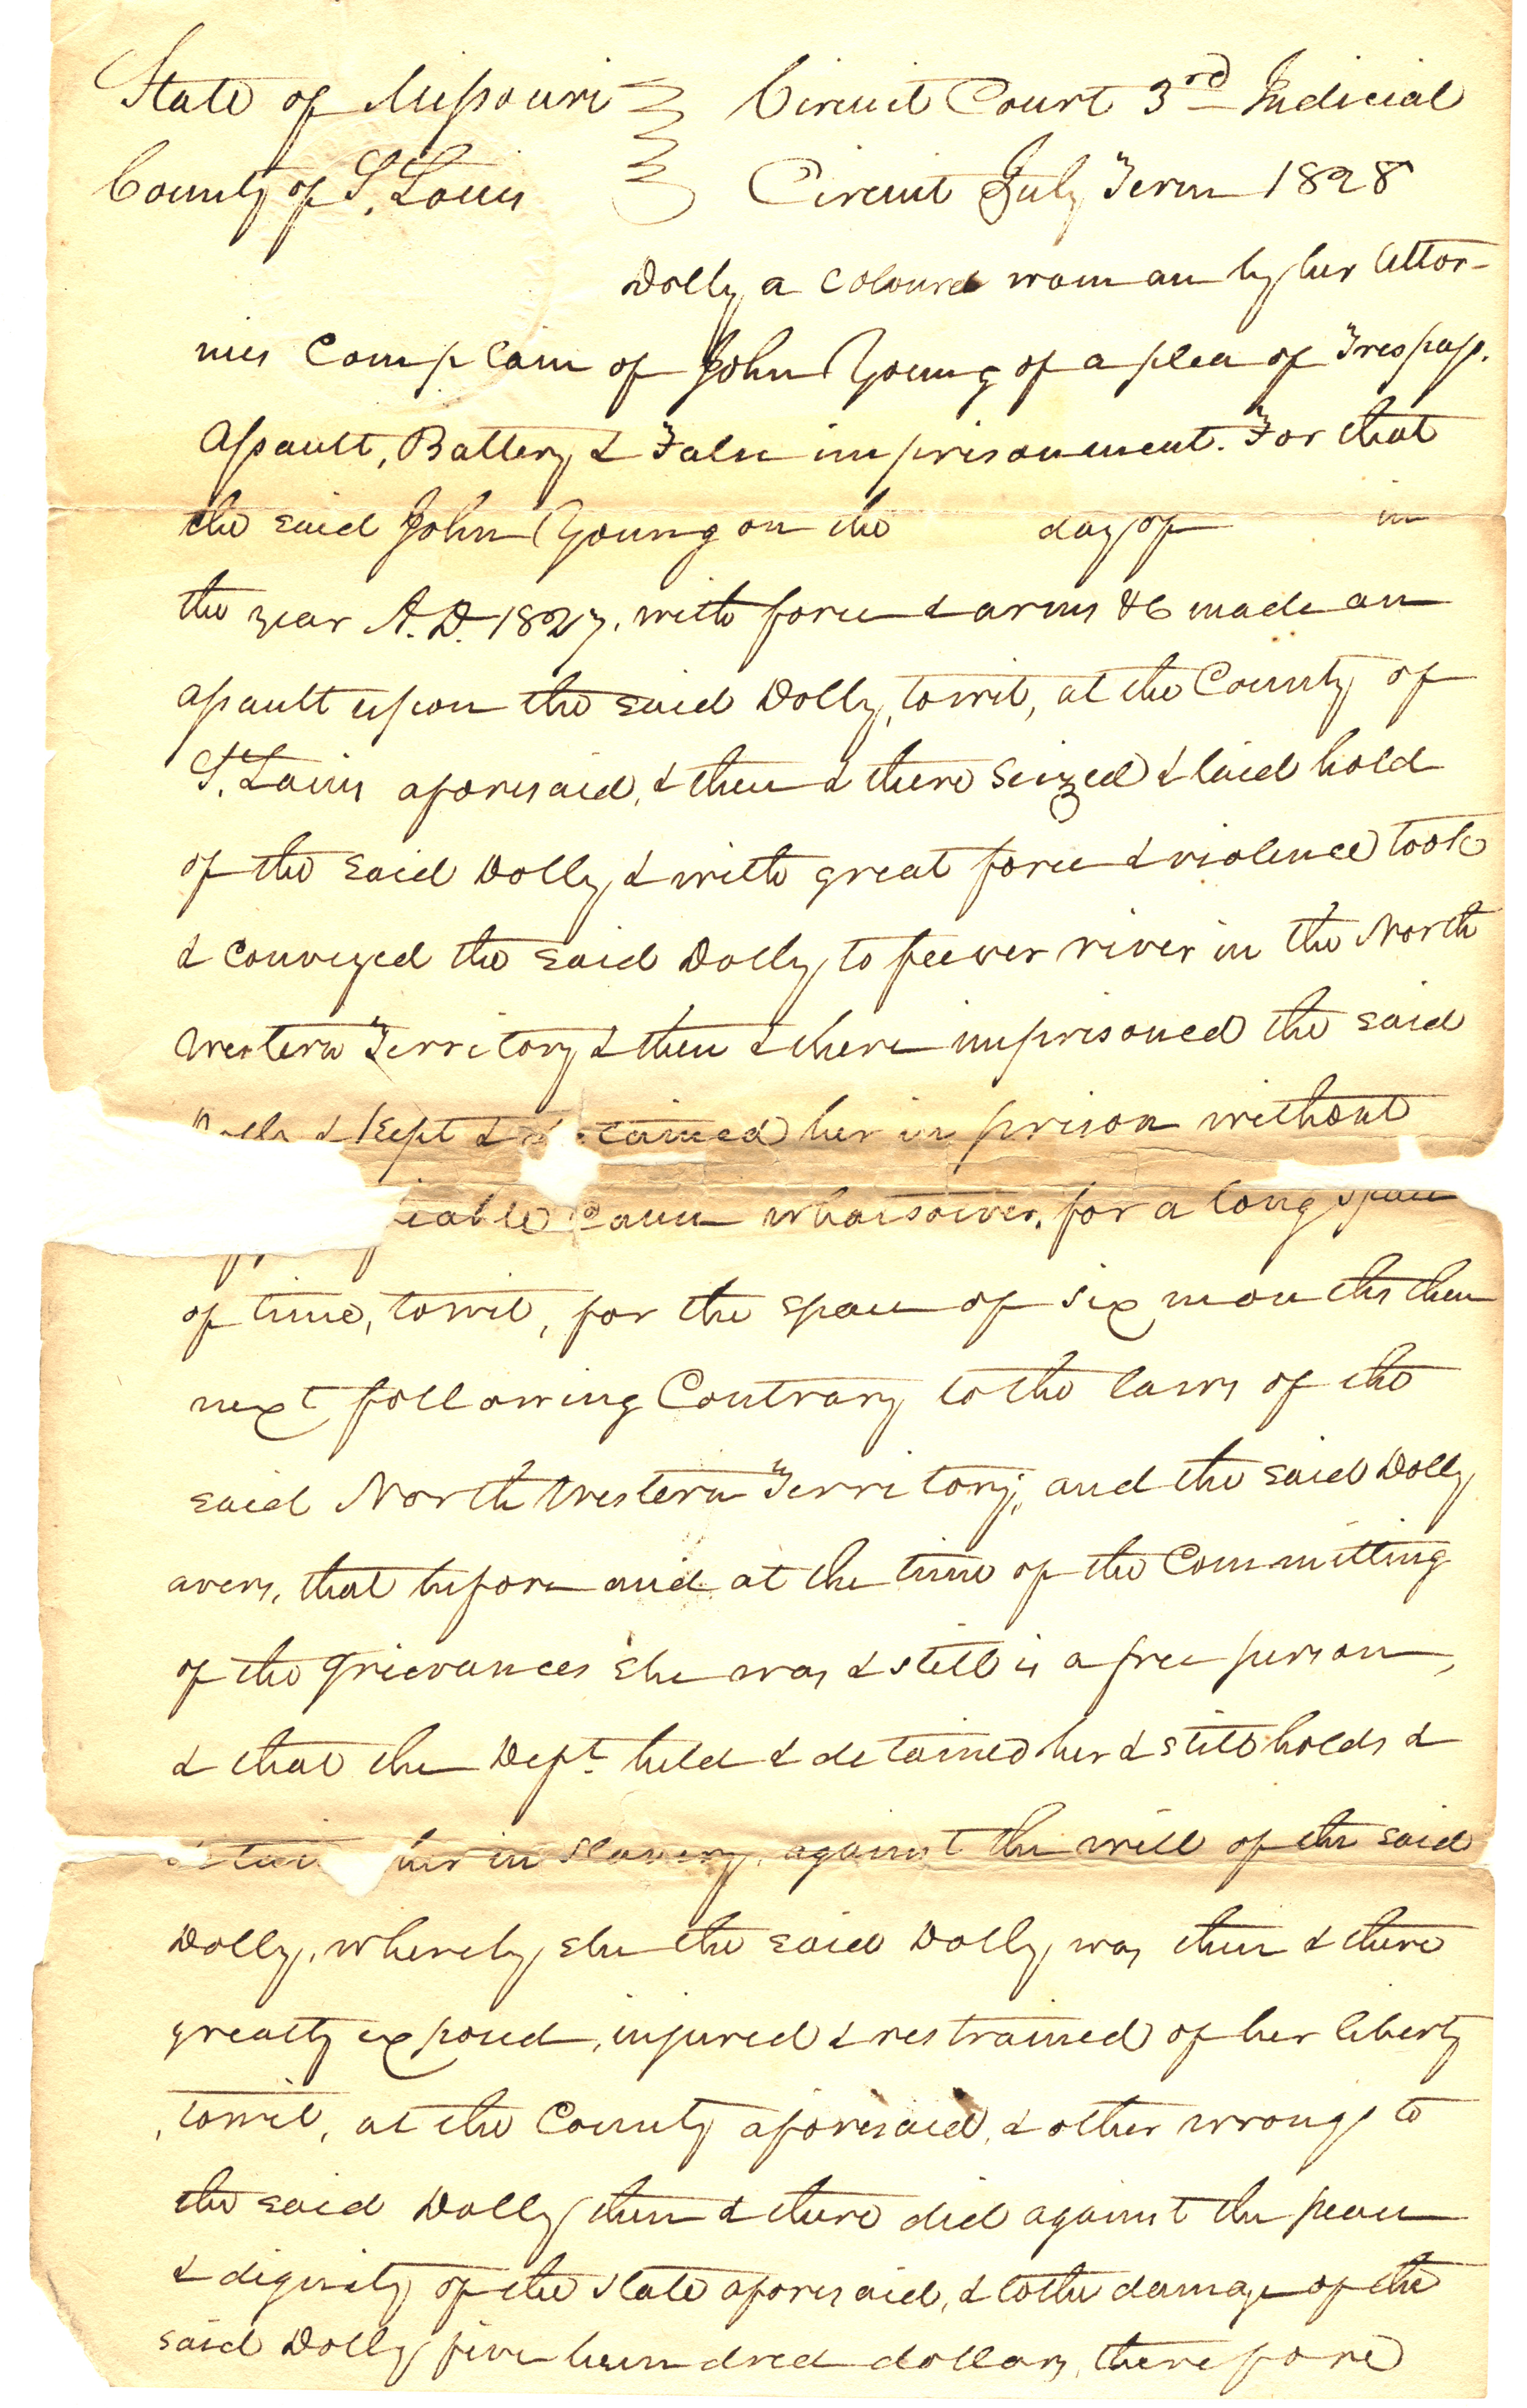 State of Missouri Circuit Court 3rd Judicial
County of St. Louis Circuit July Term 1828
Dolly a coloured woman by her Attor-
nies Complain of John Young of a plea of Trespass,
Assault, Battery & False imprisonment. For that
the said John Young on the day of in
the year A.D. 1827. with force & arms &c made an
assault upon the said Dolly, towit, at the County of
St. Louis aforesaid, & then & there seized & laid hold
of the said Dolly, & with great force & violence took
& conveyed the said Dolly, to feever river in the North
Western Territory & then & there imprisoned the said
Dolly & kept & detained her in prison without
cause whatsoever, for a long space
of time, towit, for the space of six months then
next following Contrary to the laws of the
said North Western Territory; and the said Dolly
avers, that before and at the time of the Committing
of the grievances she was & still is a free person,
& that the Deft. held & detained her & still holds &
her in slavery, against the will of the said
Dolly, whereby she the said Dolly, was then & there
greatly exposed, injured & restrained of her liberty
, towit, at the County aforesaid, & other wrongs to
the said Dolly then & there did against the peace
& dignity of the state aforesaid, & to the damage of the
said Dolly five hundred dollars, therefore